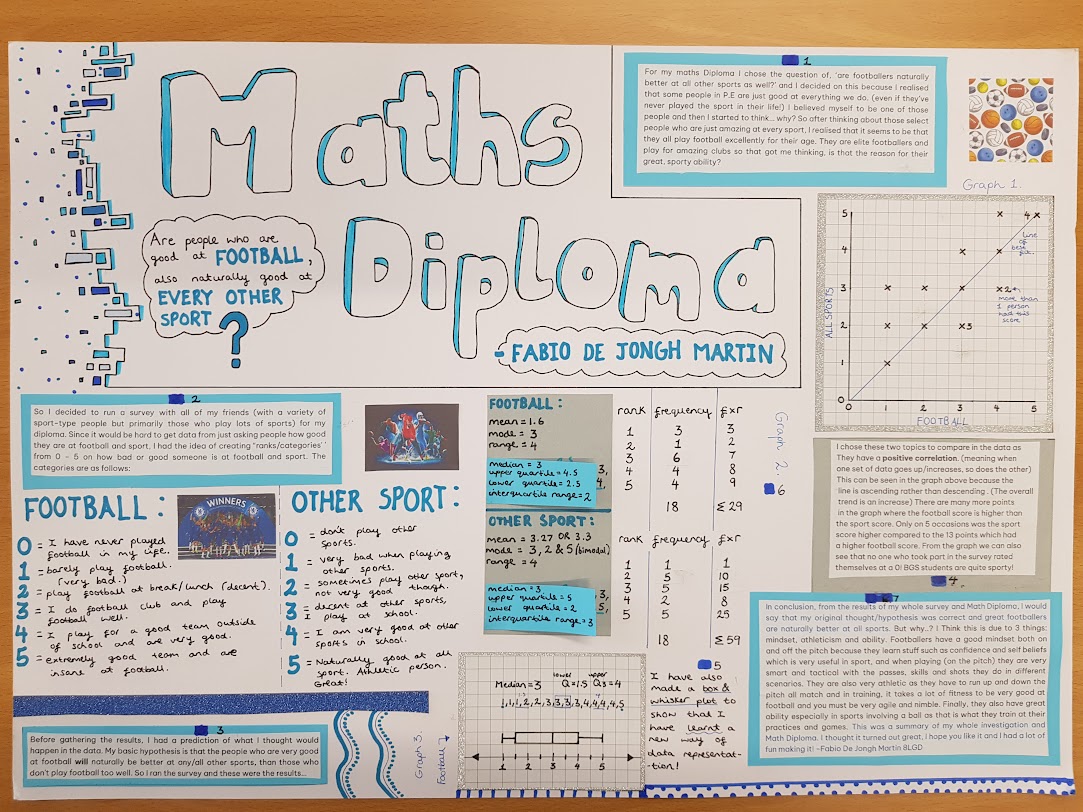 Maths
Diploma
Are people who are
good at FOOTBALL,
also naturally good at
EVERY OTHER
SPORT ?
- FABIO DE JONGH MARTIN
1
For my maths Diploma I chose the question of, 'are footballers naturally
better at all other sports as well?' and I decided on this because I realised
that some people in P.E are just good at everything we do, (even if they've
never played the sport in their life!) I believed myself to be one of those
people and then I started to think... why? So after thinking about those select
people who are just amazing at every sport, I realised that it seems to be that
they all play football excellently for their age. They are elite footballers and
play for amazing clubs so that got me thinking, is that the reason for their
great, sporty ability?
Graph 1.
ALL SPORTS
5
4
3
2
1
0
0 1 2 3 4 5
FOOTBALL
4
line
of
best
fit.
2
more than
1 person
had this
score
3
2
So I decided to run a survey with all of my friends (with a variety of
sport-type people but primarily those who play lots of sports) for my
diploma. Since it would be hard to get data from just asking people how good
they are at football and sport, I had the idea of creating "ranks/categories"
from 0 - 5 on how bad or good someone is at football and sport. The
categories are as follows:
FOOTBALL:
WINNERS
0 = I have never played
football in my life.
1 = barely play football.
(very bad.)
2 = play football at break/lunch (decent).
3 = I do football club and play
football well.
4 = I play for a good team outside
of school and are very good.
5 = extremely good team and are
insane at football.
OTHER SPORT:
0 = don't play other
sports.
1 = very bad when playing
other sports.
2 = sometimes play other sport,
not very good though.
3 = decent at other sports,
I play at school.
4 = I am very good at other
sports in school.
5 = Naturally good at all
sport. Athletic person.
Great!
3
Before gathering the results, I had a prediction of what I thought would
happen in the data. My basic hypothesis is that the people who are very good
at football will naturally be better at any/all other sports, than those who
don't play football too well. So I ran the survey and these were the results...
FOOTBALL:
mean = 1.6
mode = 3
range = 4
median = 3
upper quartile = 4.5
lower quartile = 2.5
interquartile range = 2
rank frequency fxr
1 3 3
2 1 2
3 6 7
4 4 8
5 4 9
18 Σ 29
Graph 2:
6
OTHER SPORT:
mean = 3.27 OR 3.3
mode = 3, 2 & 5 (bimodal)
range = 4
median = 3
upper quartile = 5
lower quartile = 2
interquartile range = 3
rank frequency fxr
1 1 1
2 5 10
3 5 15
4 2 8
5 5 25
18 Σ 59
I chose these two topics to compare in the data as
They have a positive correlation. (meaning when
one set of data goes up/increases, so does the other)
This can be seen in the graph above because the
line is ascending rather than descending . (The overall
trend is an increase) There are many more points
in the graph where the football score is higher than
the sport score. Only on 5 occasions was the sport
score higher compared to the 13 points which had
a higher football score. From the graph we can also
see that no one who took part in the survey rated
themselves at a 0! BGS students are quite sporty!
4
Graph 3:
Football
Median = 3
lower
Q1=1.5
upper
Q3=4
1,1,1,2,2,3,3,3,3,3,4,4,4,4,5
1 2 3 4 5
5
I have also
made a box &
whisker plot to
show that I
have learnt a
new way of
data represent-
-tion!
7
In conclusion, from the results of my whole survey and Math Diploma, I would
say that my original thought/hypothesis was correct and great footballers
are naturally better at all sports. But why..? I Think this is due to 3 things:
mindset, athleticism and ability. Footballers have a good mindset both on
and off the pitch because they learn stuff such as confidence and self beliefs
which is very useful in sport, and when playing (on the pitch) they are very
smart and tactical with the passes, skills and shots they do in different
scenarios. They are also very athletic as they have to run up and down the
pitch all match and in training, it takes a lot of fitness to be very good at
football and you must be very agile and nimble. Finally, they also have great
ability especially in sports involving a ball as that is what they train at their
practices and games. This was a summary of my whole investigation and
Math Diploma. I thought it turned out great, I hope you like it and I had a lot of
fun making it! ~Fabio De Jongh Martin 8LGD